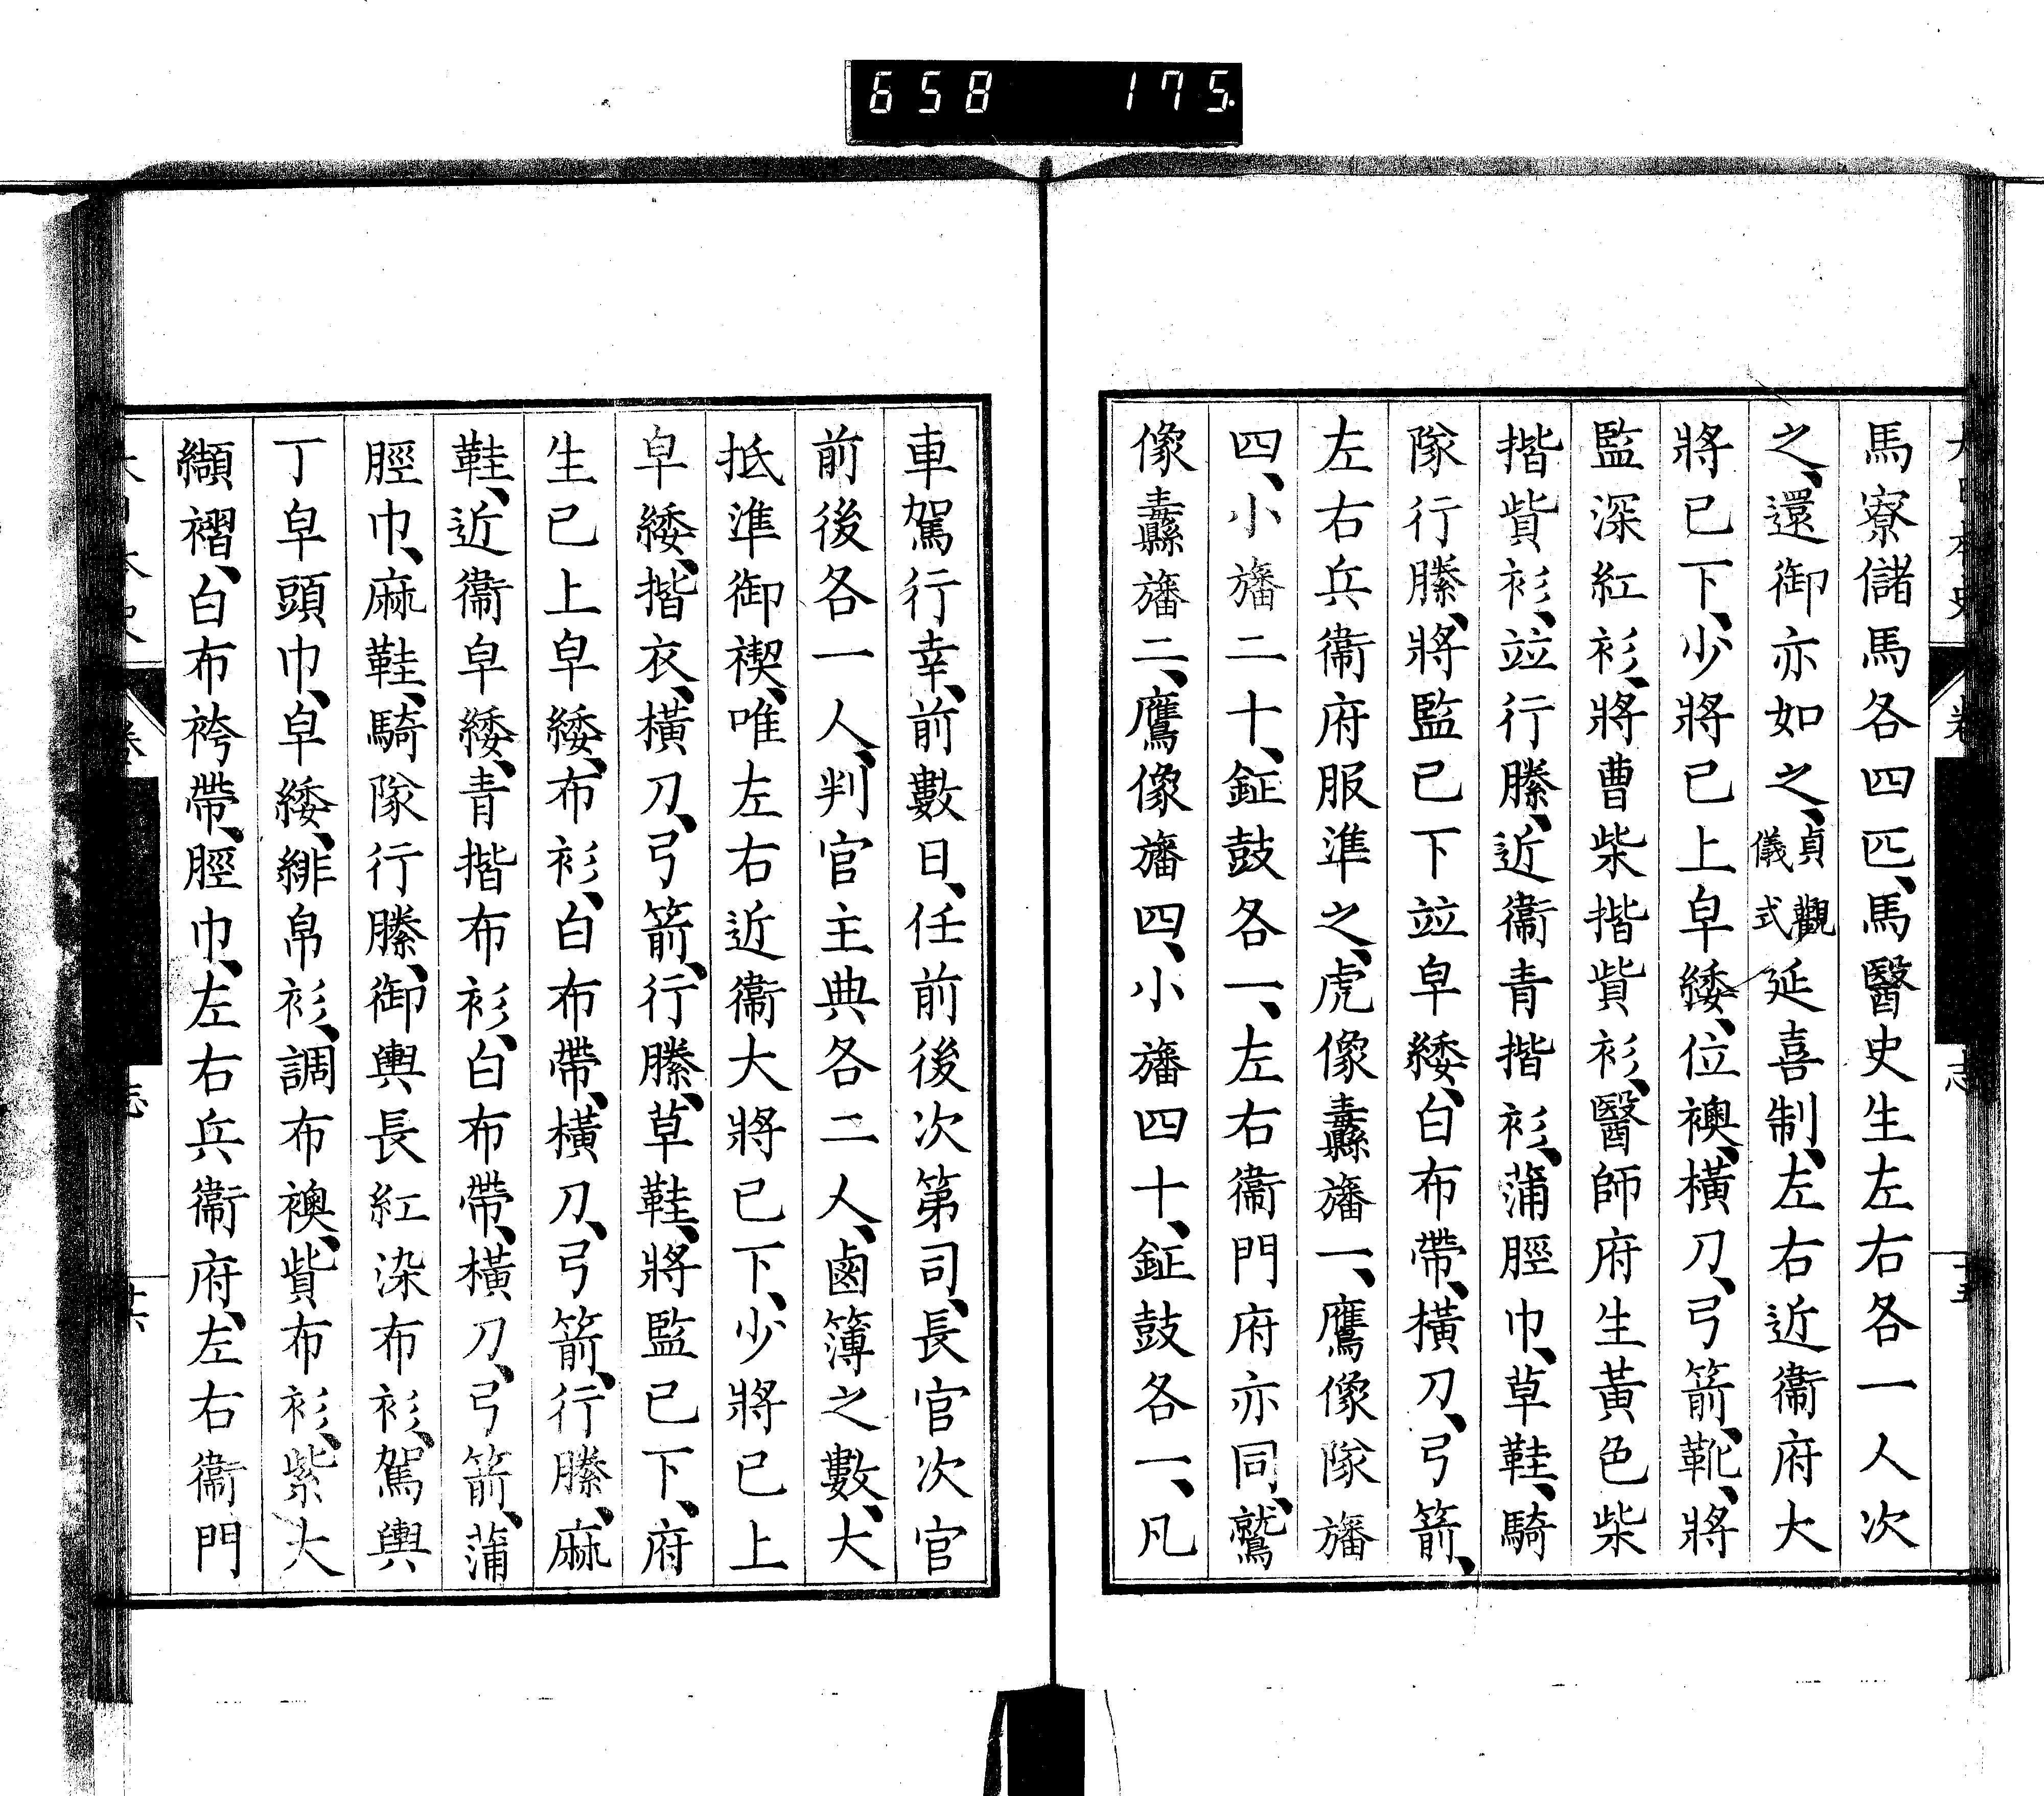 658 175
馬寮儲馬各四匹、馬醫史生左右各一人次
之、還御亦如之、貞觀儀式延喜制、左右近衞府大
將已下、少將已上皁緌、位襖、橫刀、弓箭、靴、將
監深紅衫、將曹柴揩貲衫、醫師府生黃色柴
揩貲衫、竝行縢、近衞靑揩衫、蒲脛巾、草鞋、騎
隊行縢、將監已下竝皁緌、白布帶、橫刀、弓箭、
左右兵衞府服準之、虎像纛旛一、鷹像隊旛
四、小旛二十、鉦鼓各一、左右衞門府亦同、鷲
像纛旛二、鷹像旛四、小旛四十、鉦鼓各一、凡
車駕行幸、前數日、任前後次第司、長官次官
前後各一人、判官主典各二人、鹵簿之數、大
抵準御禊、唯左右近衞大將已下、少將已上
皁緌、揩衣、橫刀、弓箭、行縢、草鞋、將監已下、府
生已上皁緌、布衫、白布帶、橫刀、弓箭、行縢、麻
鞋、近衞皁緌、靑揩布衫、白布帶、橫刀、弓箭、蒲
脛巾、麻鞋、騎隊行縢、御輿長紅染布衫、駕輿
丁皁頭巾、皁緌、緋帛衫、調布襖、貲布衫、紫大
纈褶、白布袴帶、脛巾、左右兵衞府、左右衞門